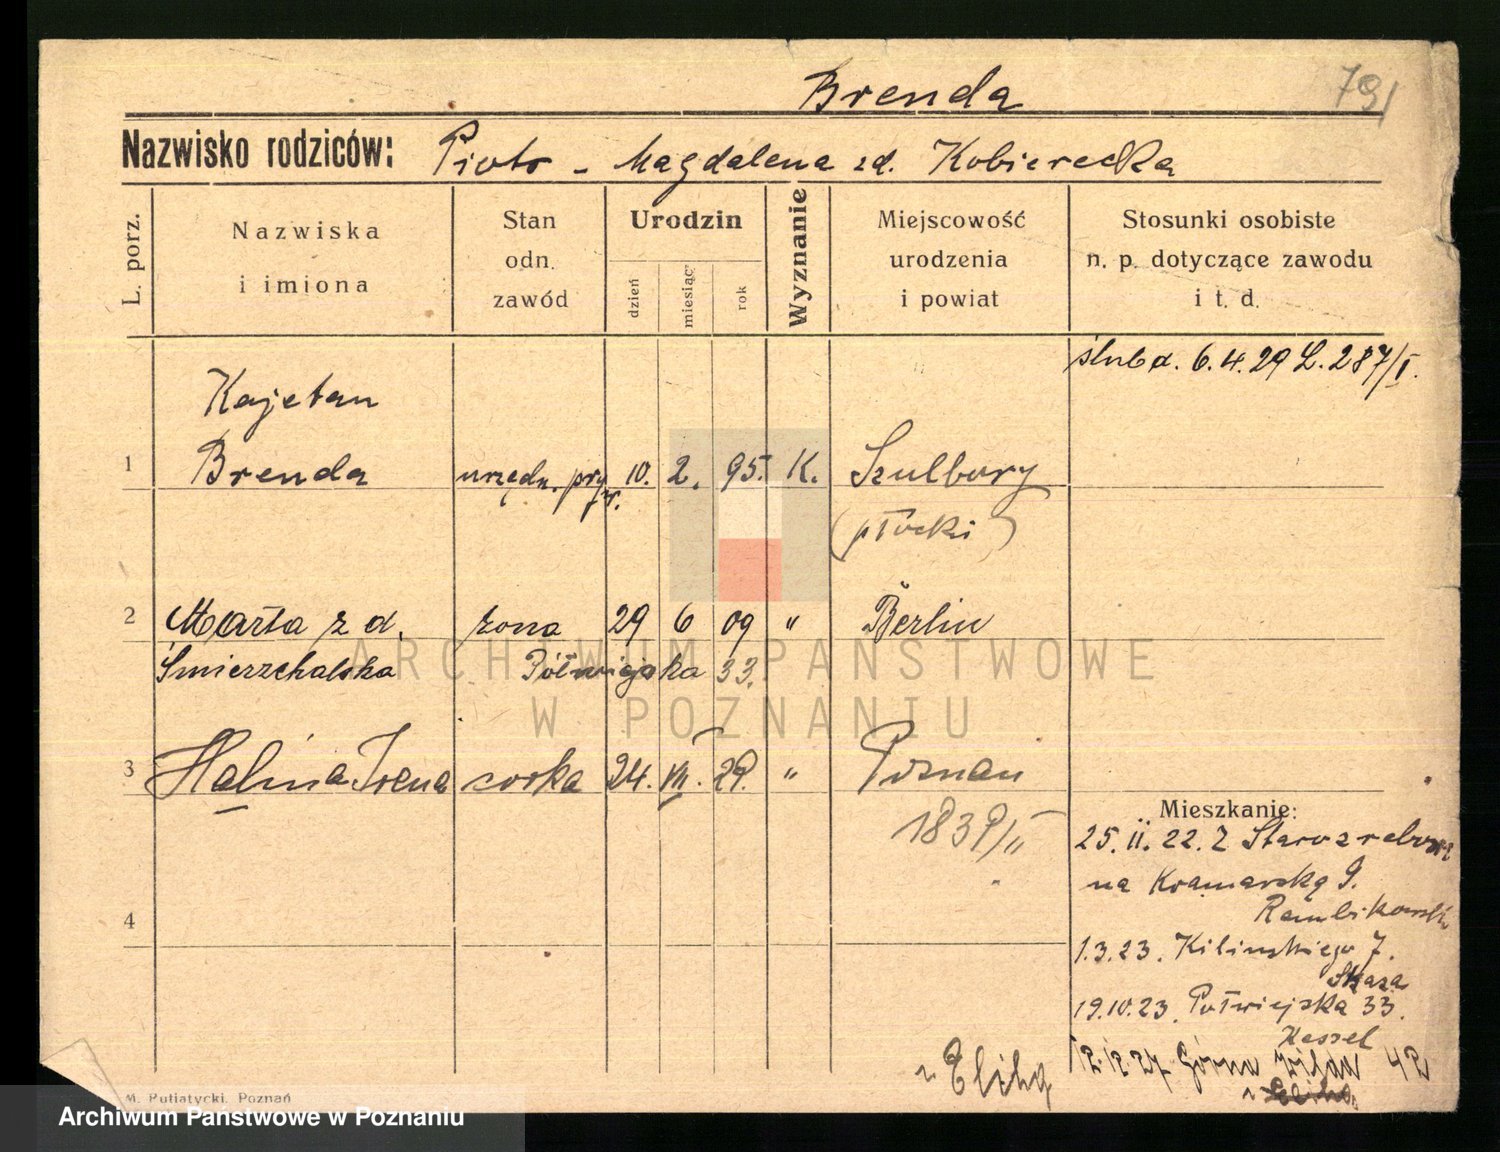 Brenda
791
Nazwisko rodziców: Piotr - Magdalena zd. Kobierecka
L. porz.
Nazwiska
i imiona
Stan
odn.
zawód
Urodzin
dzień
miesiąc
rok
Wyznanie
Miejscowość
urodzenia
i powiat
Stosunki osobiste
n. p. dotyczące zawodu
i t. d.
ślub d. 6.4.29 L. 287/I.
Kajetan
1 Brenda urzędn. pryw. 10. 2. 95. K. Szulbory
(płocki)
2 Marta z d. żona 29 6 09 " Berlin
Śmierzchalska Półwiejska 33.
3 Halina Irena corka 24. VII. 29. " Poznan
1839/II
Mieszkanie:
25. II. 22. Z
na Kramarską 9.
4
1.3.23. Kilinskiego 7.
Skaza
19.10.23. Połwiejska 33.
Kessel
12.12.27 Górna Wilda 42
ARCHIWUM PAŃSTWOWE
W POZNANIU
M. Putiatycki, Poznań
Archiwum Państwowe w Poznaniu